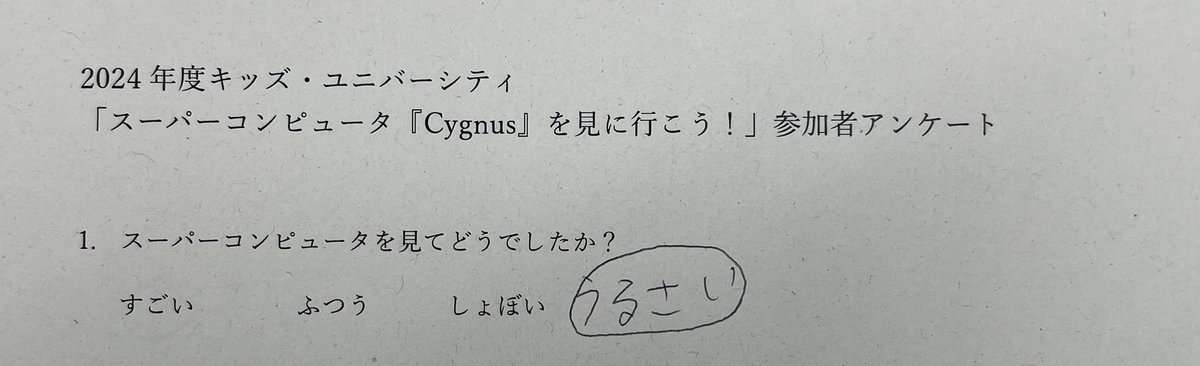 2024 年度キッズ・ユニバーシティ
「スーパーコンピュータ『Cygnus』を見に行こう！」参加者アンケート
1. スーパーコンピュータを見てどうでしたか？
すごい ふつう しょぼい うるさい